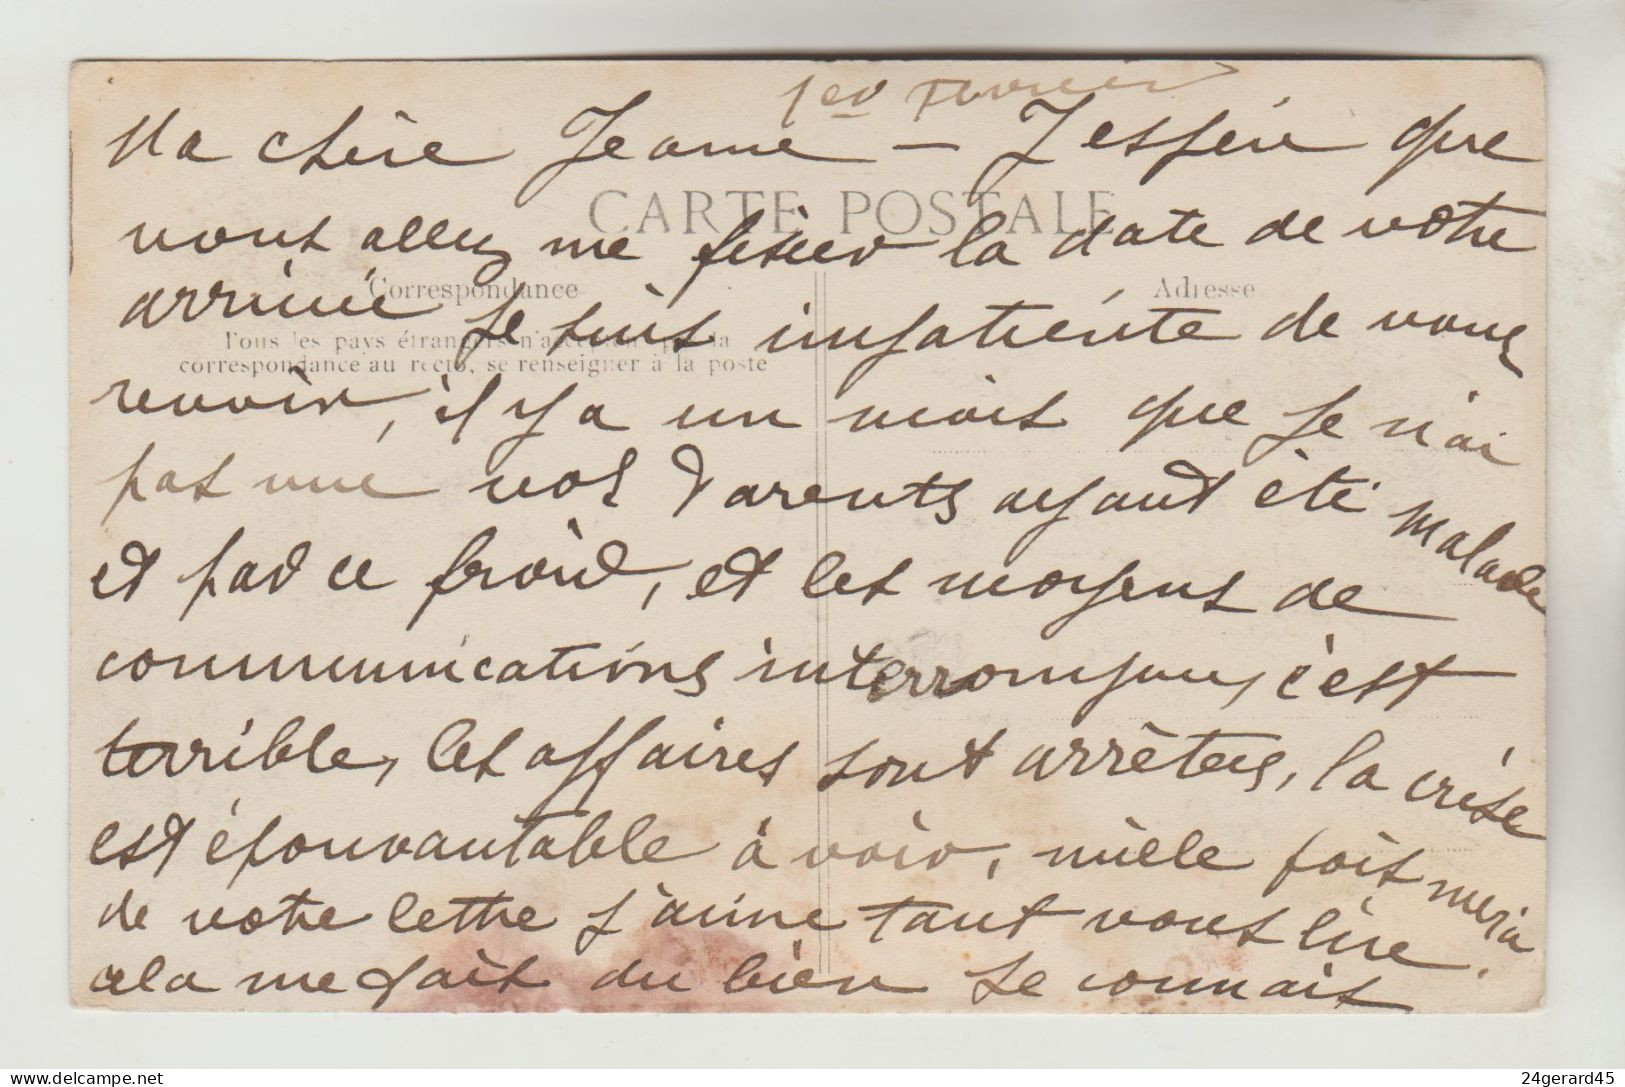 1er Février
Ma chère Jeanne — J'espère que
CARTE POSTALE
vous allez me fixer la date de votre
Correspondance
Adresse
arrivée je suis impatiente de vous
Tous les pays étrangers n'acceptent pas la
correspondance au recto, se renseigner à la poste
revoir, il y a un mois que je n'ai
pas vue vos Parents ayant été malade
et par ce froid, et les moyens de
communications interrompus, c'est
terrible, les affaires sont arrêtées, la crise
est épouvantable à voir, mille fois merci
de votre lettre j'aime tant vous lire.
cela me fait du bien je connais
24gerard45